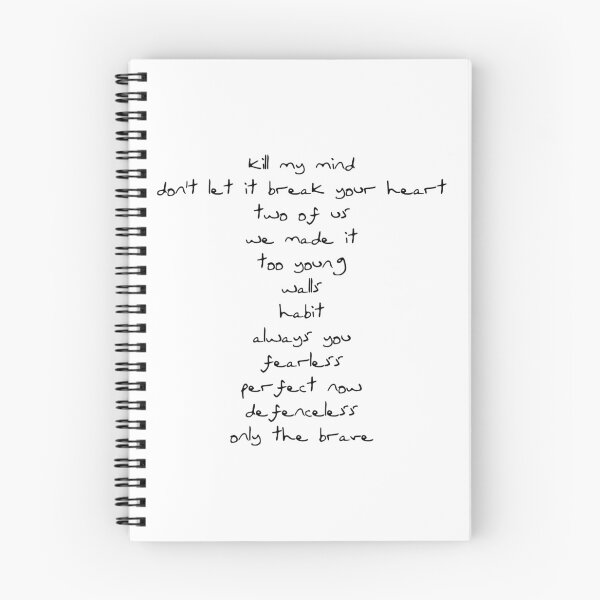 kill my mind
don't let it break your heart
two of us
we made it
too young
walls
habit
always you
fearless
perfect now
defenceless
only the brave